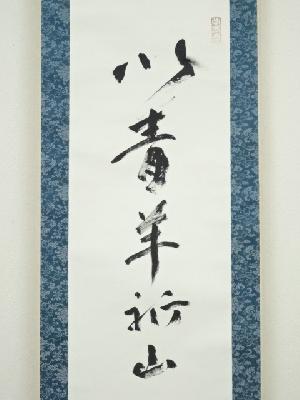 以青羊祈山